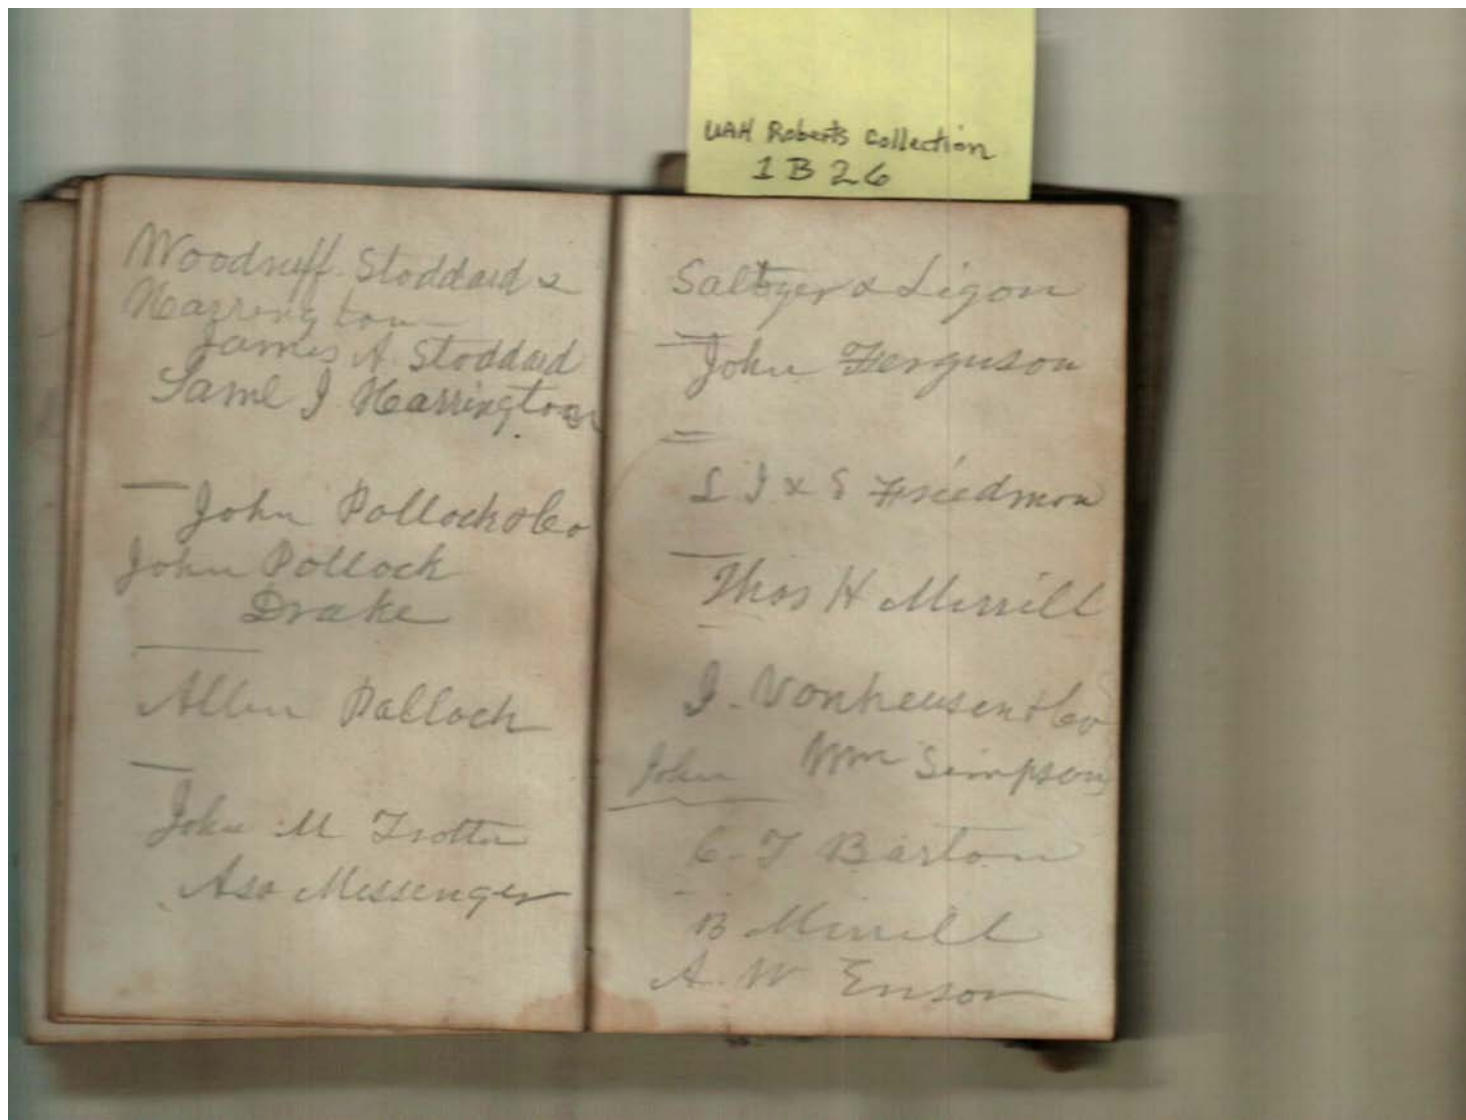 UAH Roberts Collection
1 B 26
Woodruff Stoddard &
Harrington
James A. Stoddard
Saml J Harrington
John Pollock & Co
John Pollock
Drake
Allen Pollock
John M Trotter
Asa Messenger
Saltzer & Ligon
John Ferguson
L J & S Friedman
Thos H Merrill
J. Vonheusen & Co
John Wm Simpson
C. T Barton
B Merrill
A. W Enson